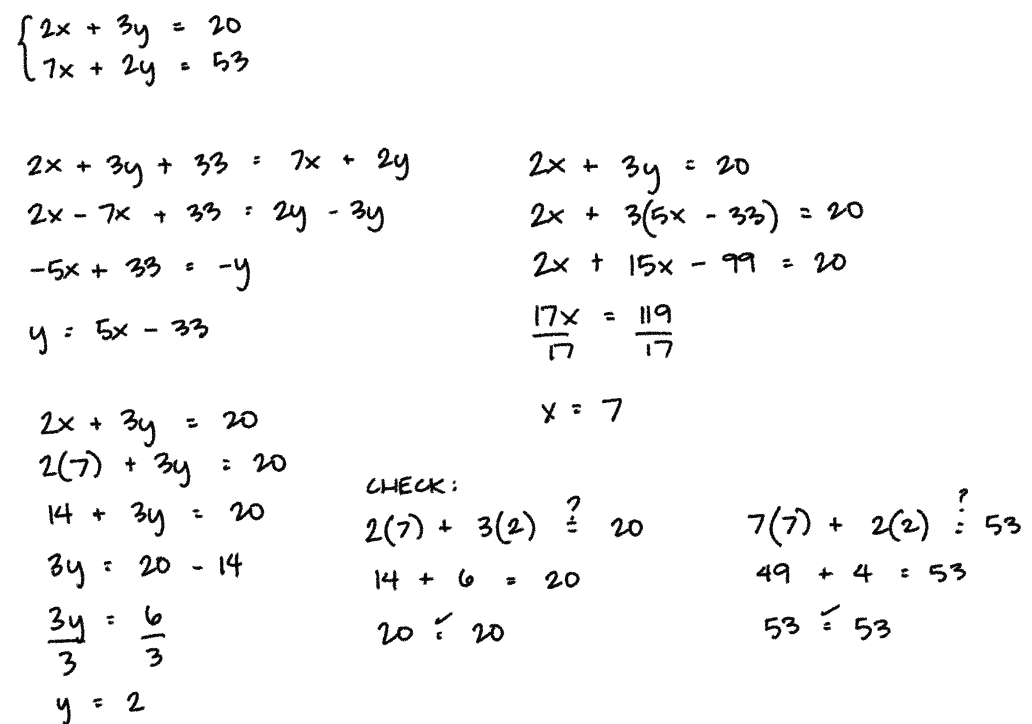 2x + 3y = 20
7x + 2y = 53
2x + 3y + 33 = 7x + 2y
2x - 7x + 33 = 2y - 3y
-5x + 33 = -y
y = 5x - 33
2x + 3y = 20
2x + 3(5x - 33) = 20
2x + 15x - 99 = 20
17x = 119
17 17
x = 7
2x + 3y = 20
2(7) + 3y = 20
14 + 3y = 20
3y = 20 - 14
3y = 6
3 3
y = 2
CHECK:
2(7) + 3(2) ≟ 20
14 + 6 = 20
20 =✓ 20
7(7) + 2(2) ≟ 53
49 + 4 = 53
53 =✓ 53